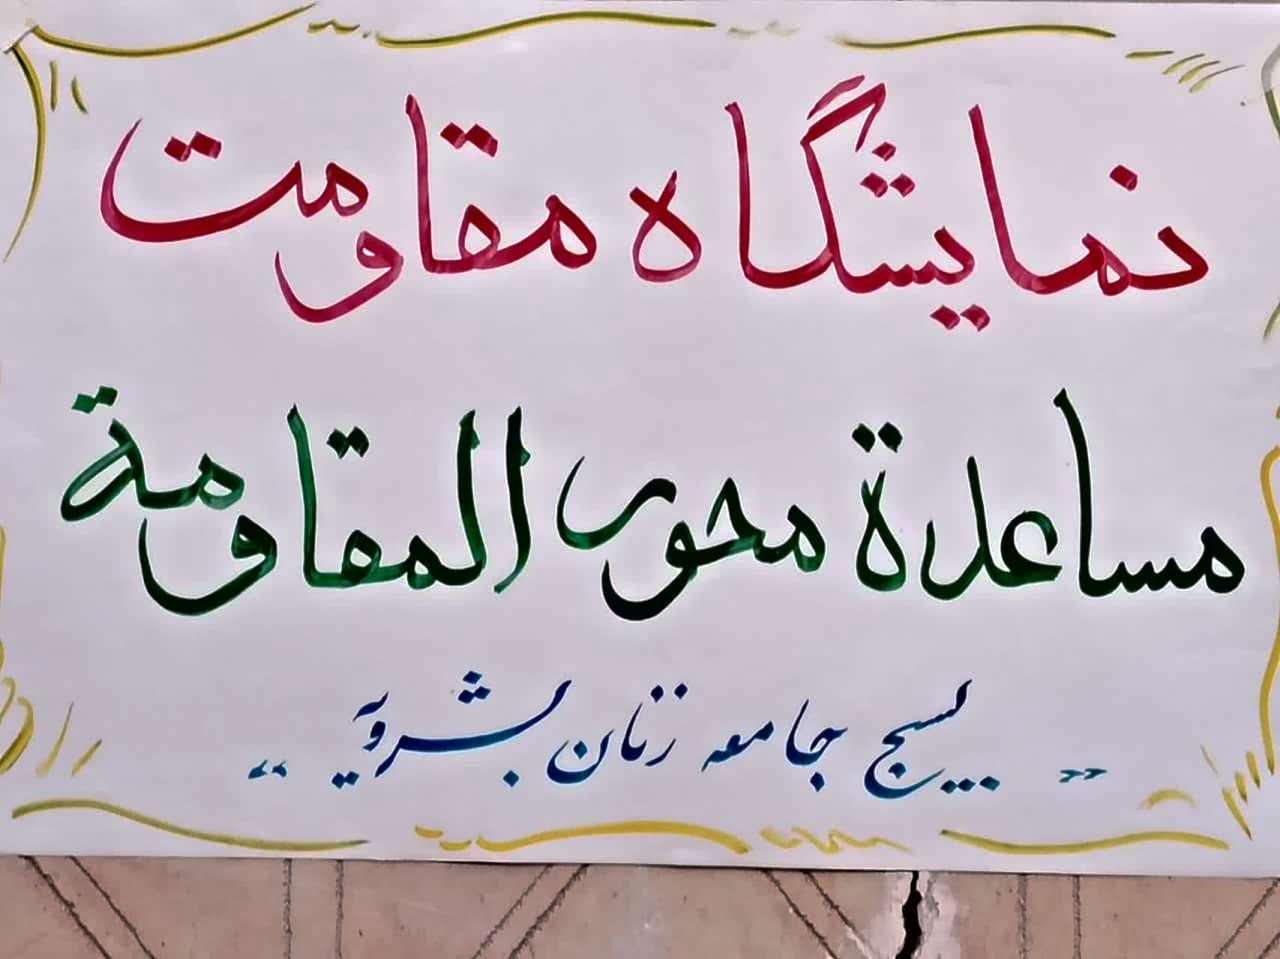 نمایشگاه مقاومت
مساعدة محور المقاومة
« بسیج جامعه زنان بشرویه »